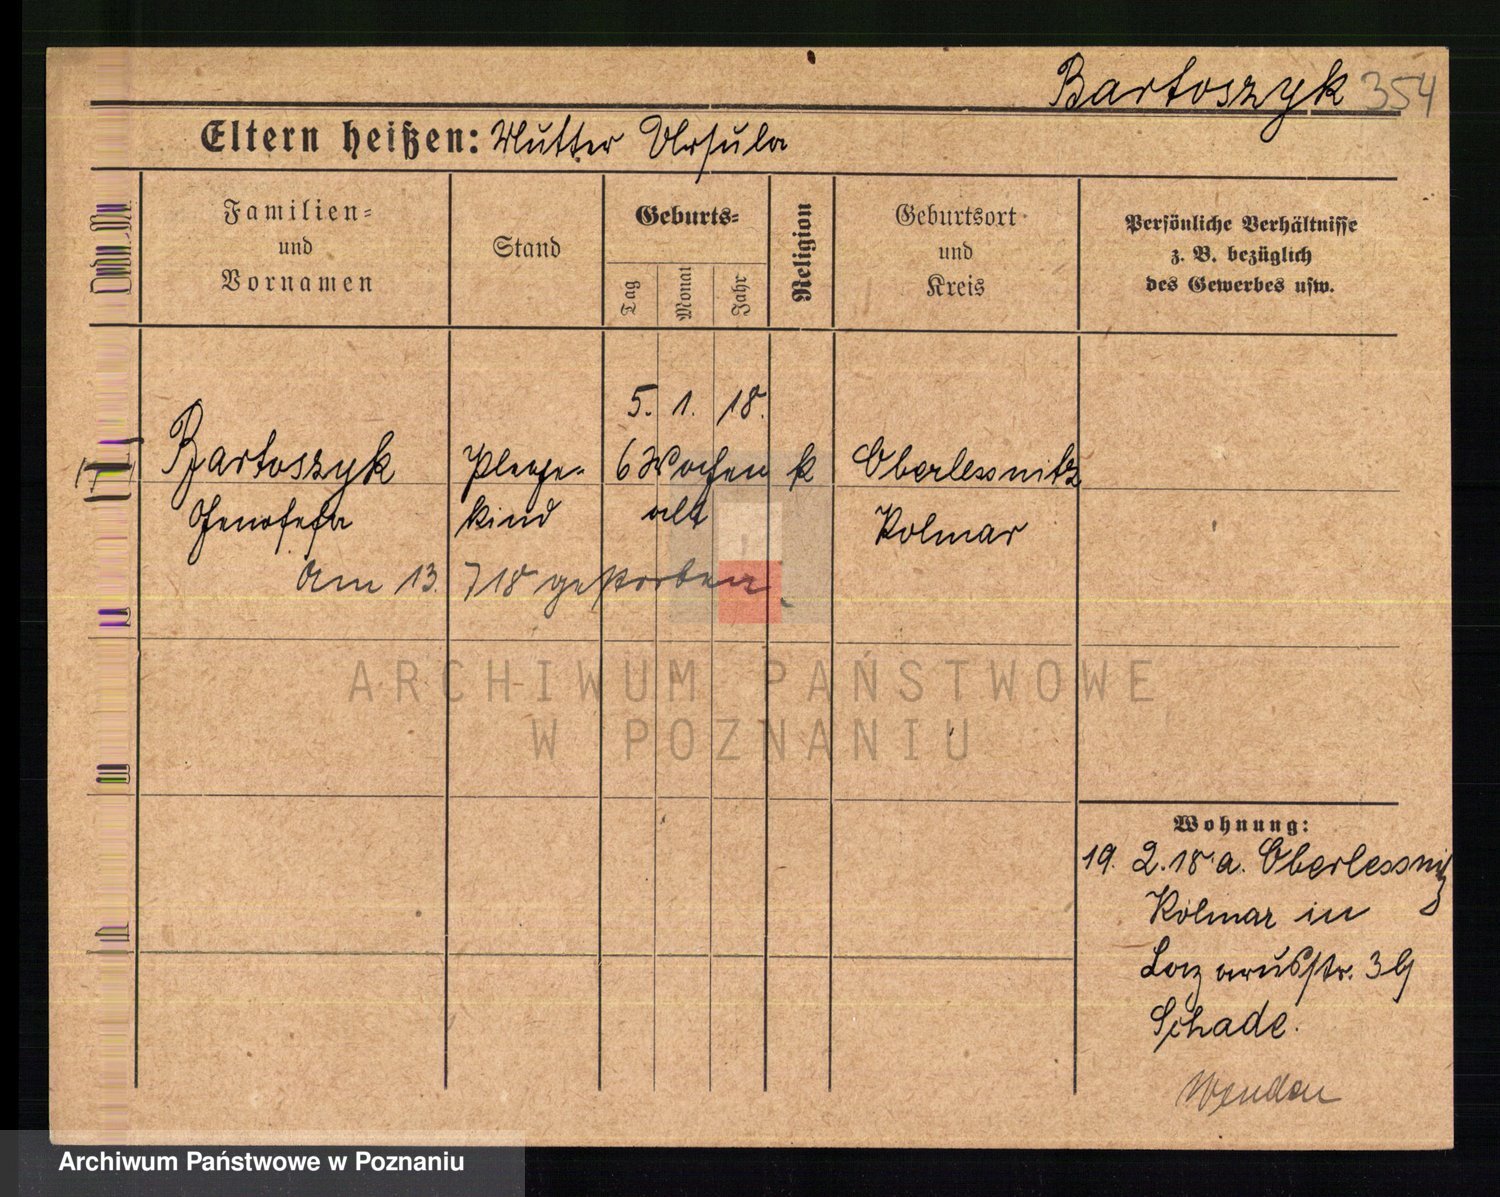 Bartoszyk 354
Eltern heißen: Mutter Ursula
Ordn.-Nr.
Familien-
und
Vornamen
Stand
Geburts-
Tag
Monat
Jahr
Religion
Geburtsort
und
Kreis
Persönliche Verhältnisse
z. B. bezüglich
des Gewerbes usw.
5. 1. 18.
Bartoszyk Pflege- 6 Wochen k Oberlessnitz
Genofefa kind alt Kolmar
Am 13. 7 18 gestorben
ARCHIWUM PAŃSTWOWE
W POZNANIU
Wohnung:
19. 2. 18 a. Oberlessnitz
Kolmar in
Lazarusstr. 39
Schade.
Wenden
Archiwum Państwowe w Poznaniu